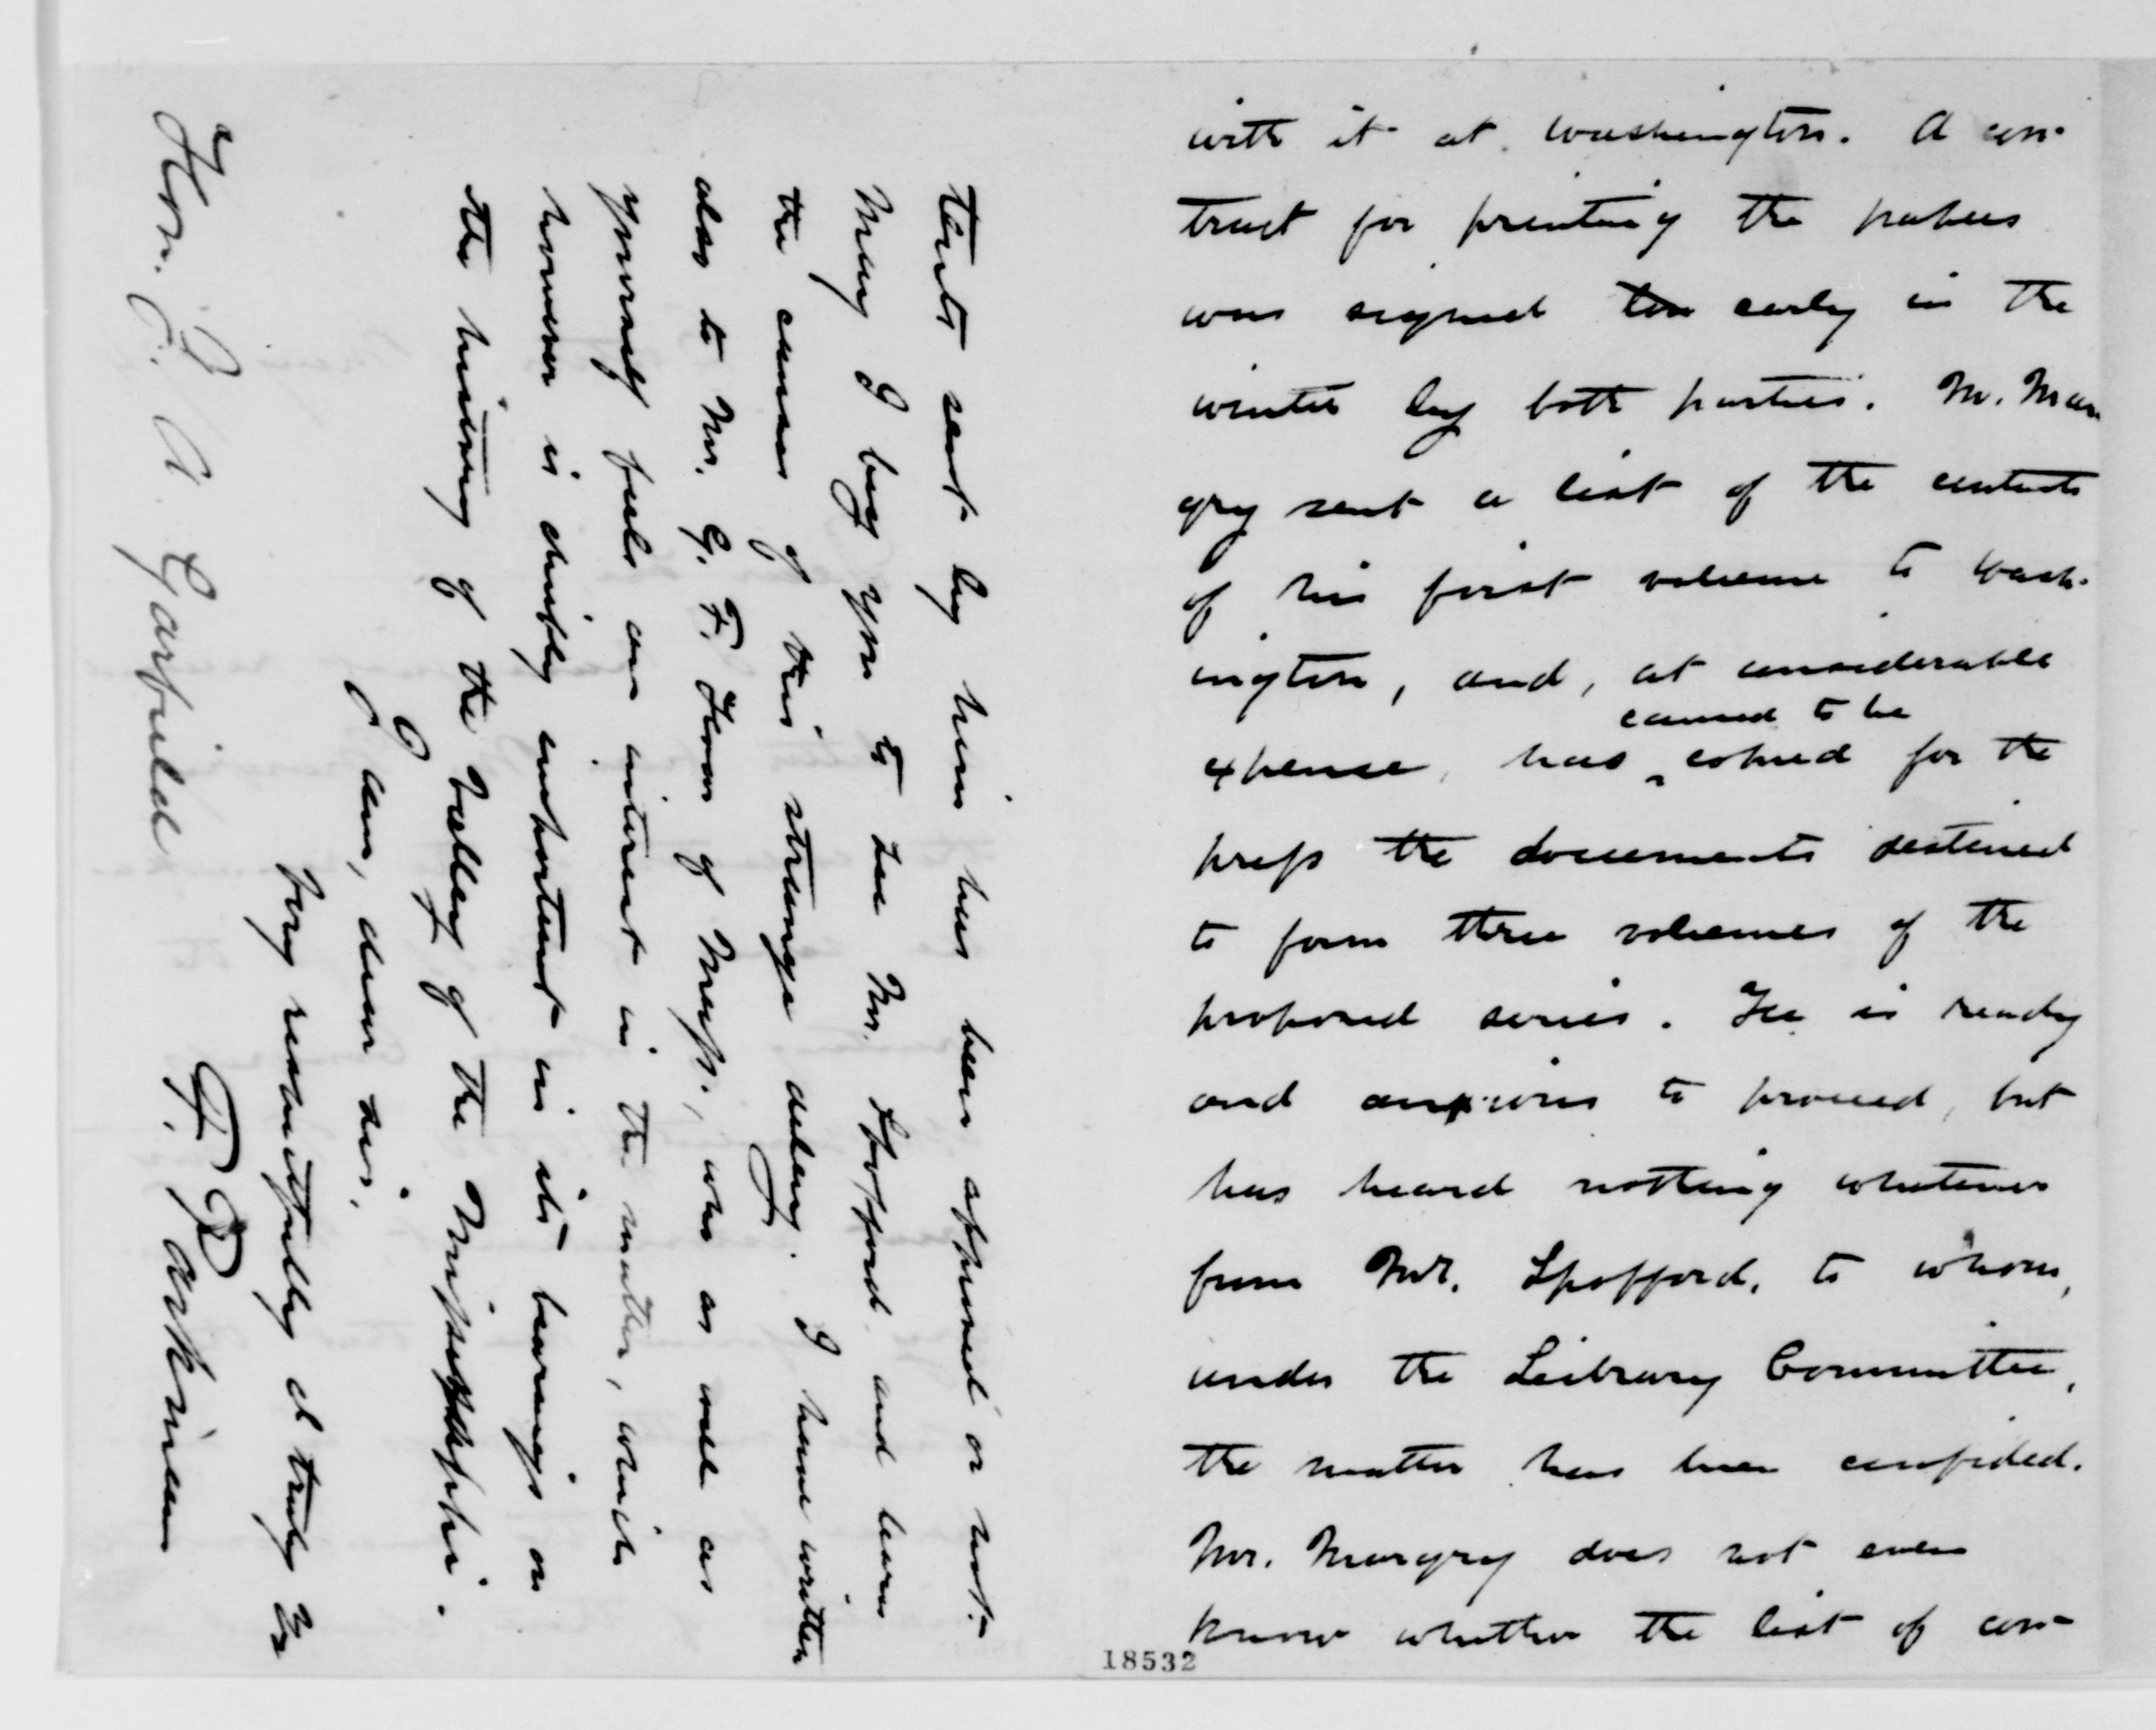 with it at Washington. A con-
tract for printing the papers
was signed too early in the
winter by both parties. M. Mar
gry sent a list of the contents
of his first volume to Wash-
ington, and, at considerable
caused to be
expense, has ‸ copied for the
press the documents destined
to form three volumes of the
proposed series. He is ready
and anxious to proceed, but
has heard nothing whatever
from Mr. Spofford, to whom,
under the Library Committee,
the matter has been confided.
Mr. Margry does not even
know whether the list of con-
18532
tents sent by him has been approved or not.
May I beg you to see Mr. Spofford and learn
the cause of this strange delay. I have written
also to Mr. G. F. Hoar of Mass., who as well as
yourself feels an interest in the matter, which
however is chiefly important in its bearings on
the history of the valley of the Mississippi.
I am, dear sir,
Very respectfully & truly Yrs
F. Parkman
Hon. J. A. Garfield